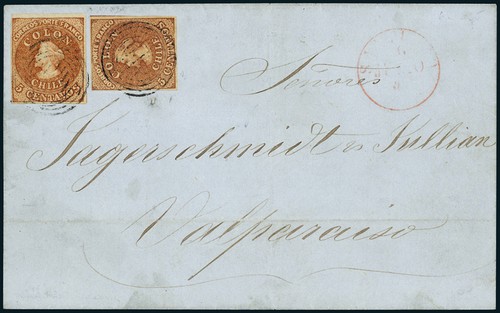 CORREOS PORTE FRANCO
COLON
CHILE
5 CENTAVOS
CORREOS PORTE FRANCO
COLON
CHILE
5 CENTAVOS
Señores
Jagerschmidt & Jullian
Valparaiso